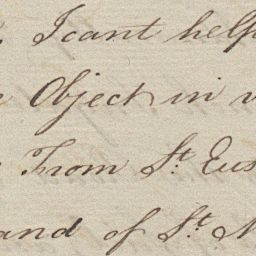 I cant help
Object in
From St. Eus
and of St.